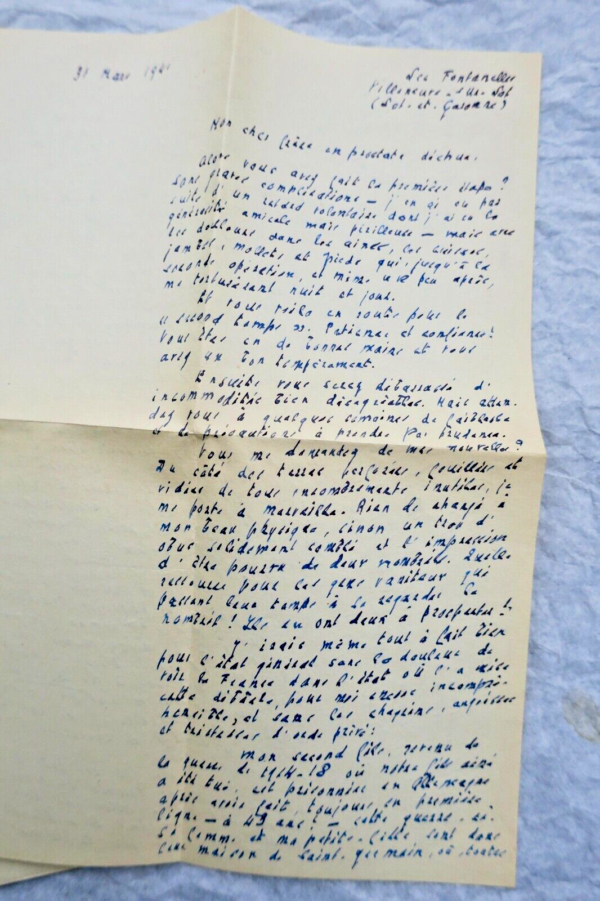 31 Mars 19
Les Fontanelles
Villeneuve-sur-Lot
(Lot-et-Garonne)
Mon cher frère en prostate déchue.
Alors vous avez fait la première étape ?
sans graves complications – j'en ai eu par
suite d'un retard volontaire dont j'ai eu la
généralité amicale mais périlleuse – mais avec
des douleurs dans les aines, les cuisses,
jambes, mollets et pieds qui, jusqu'à la
seconde opération, et même un peu après,
me torturèrent nuit et jour.
Et vous voilà en route pour le
« second temps ». Patience et confiance !
Vous êtes en de bonnes mains et vous
avez un bon tempérament.
Ensuite vous serez débarrassé d'
incommodités bien désagréables. Mais atten-
dez vous à quelques semaines de faiblesse
et de précautions à prendre. Pas prudence.
Vous me demandez de mes nouvelles ?
Du côté des bourses percées, fouillées et
vidées de tous encombrements inutiles, ça
me porte à merveille. Rien de changé à
mon beau physique, sinon un trou d'
obus solidement comblé et l'impression
d'être pourvu de deux nombrils. Quelle
ressource pour les gens vaniteux qui
passent leur temps à se regarder le
nombril ! Ils en ont deux à prospecter !
J'irais même tout à fait bien
pour l'état général sans la douleur de
voir la France dans l'état où l'a mise
cette défaite, pour moi encore incompré-
hensible, et sans les chagrins, angoisses
et tristesses d'ordre privé :
mon second fils, revenu de
la guerre de 1914-18 où notre fils aîné
a été tué, est prisonnier en Allemagne
après avoir fait, toujours en première
ligne – à 43 ans ! – cette guerre-ci.
Sa femme et ma petite-fille sont dans
leur maison de Saint-Germain, où, toutes